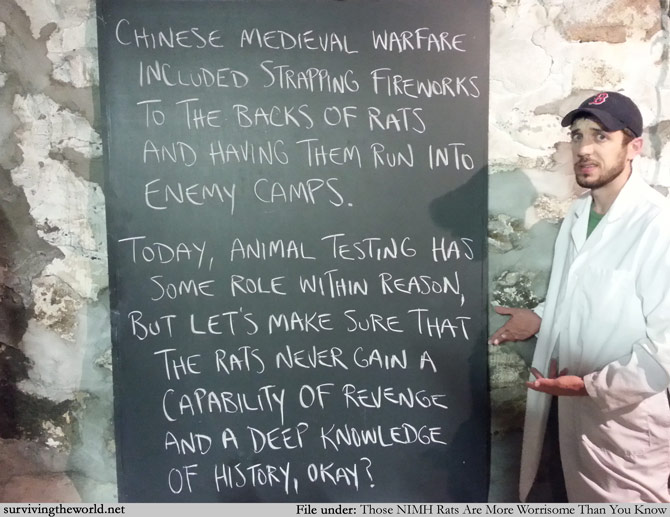 CHINESE MEDIEVAL WARFARE
INCLUDED STRAPPING FIREWORKS
TO THE BACKS OF RATS
AND HAVING THEM RUN INTO
ENEMY CAMPS.
TODAY, ANIMAL TESTING HAS
SOME ROLE WITHIN REASON,
BUT LET'S MAKE SURE THAT
THE RATS NEVER GAIN A
CAPABILITY OF REVENGE
AND A DEEP KNOWLEDGE
OF HISTORY, OKAY?
B
survivingtheworld.net
File under: Those NIMH Rats Are More Worrisome Than You Know